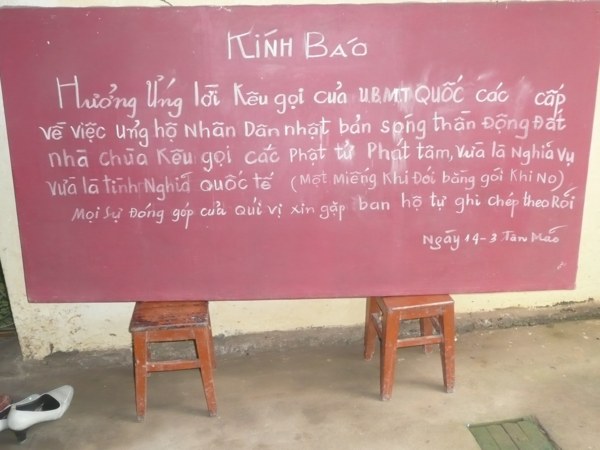 KÍNH BÁO
Hưởng Ứng lời Kêu gọi của U.B.MT QUỐC các cấp
về việc ủng hộ Nhân Dân nhật bản sóng thần Động Đất
nhà chùa Kêu gọi các Phật tử Phát tâm, vừa là Nghĩa Vụ
vừa là tình Nghĩa quốc tế (Một Miếng Khi Đói bằng gói Khi No)
Mọi Sự Đóng góp của Quí vị xin gặp ban hộ tự ghi chép theo Rỏi
Ngày 14-3 Tân Mão